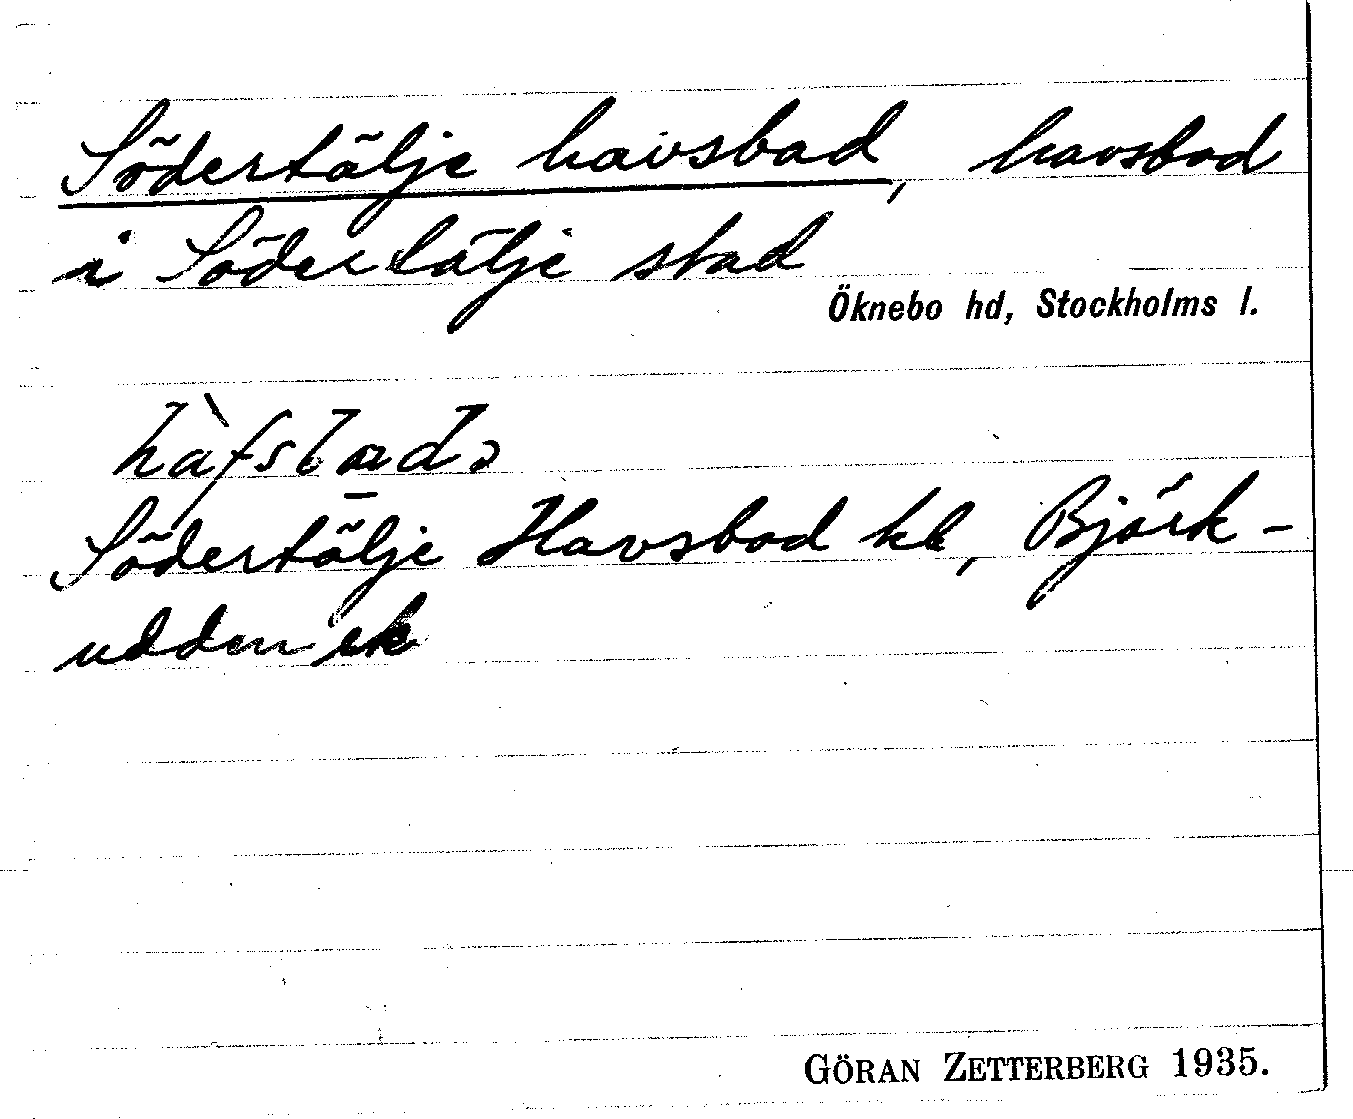 Södertälje havsbad, havsbad
i Södertälje stad
Öknebo hd, Stockholms l.
Södertälje Havsbad kk, Björk-
udden ek
GÖRAN ZETTERBERG 1935.